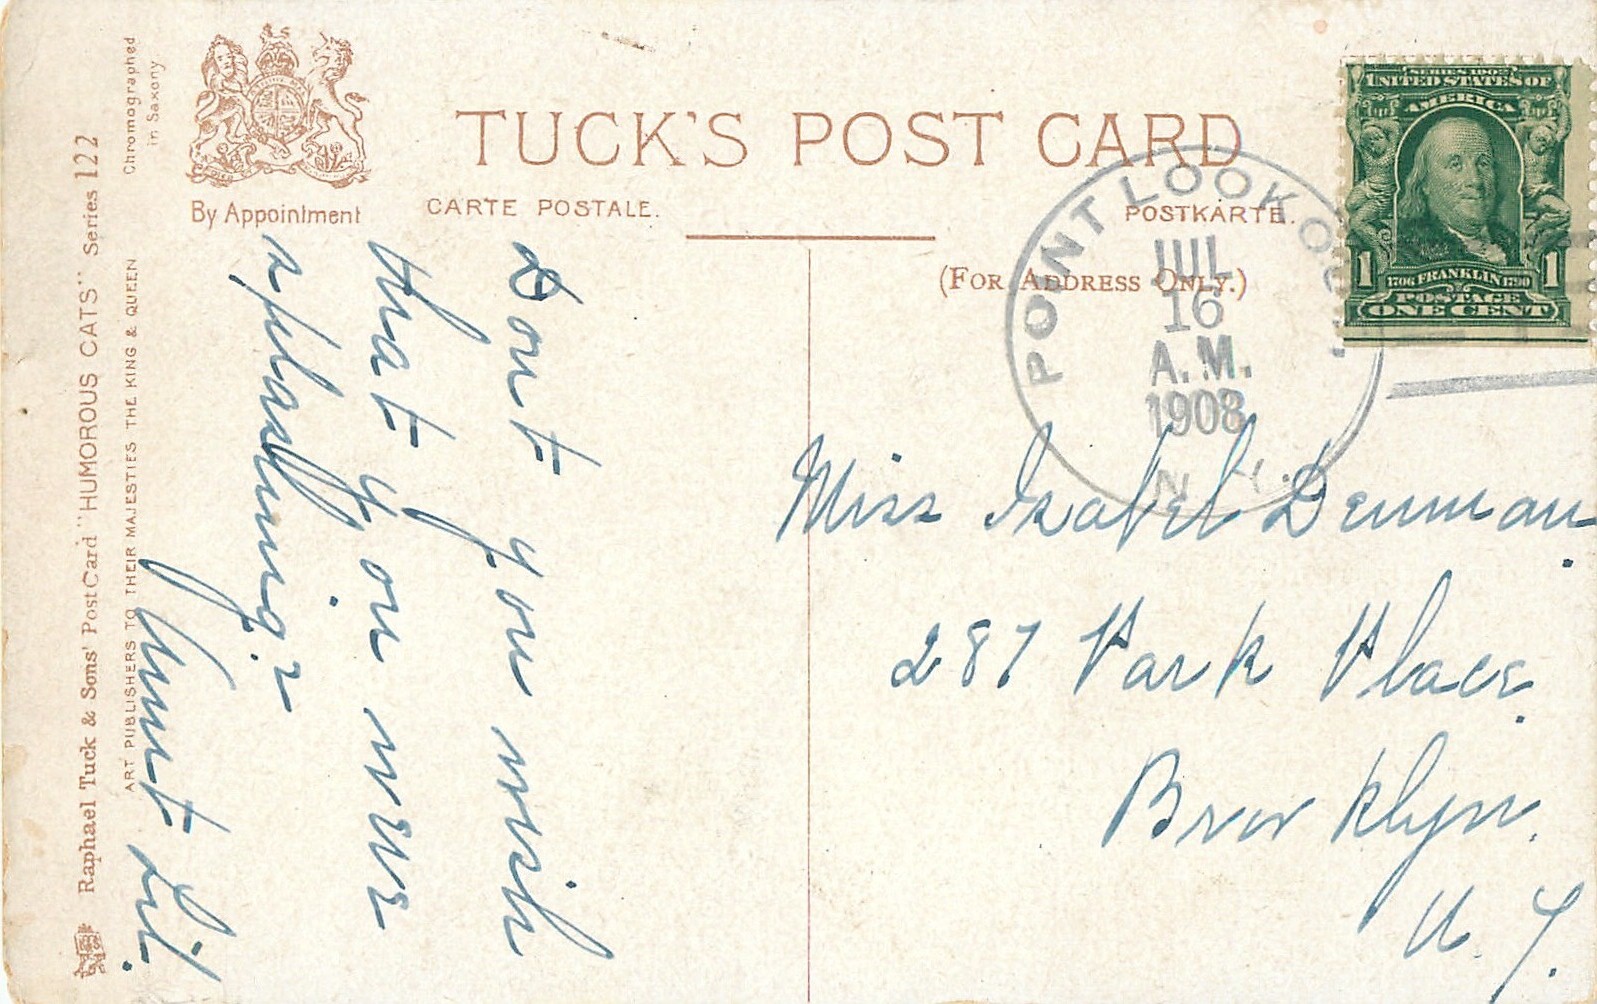 Chromographed
in Saxony
By Appointment
TUCK'S POST CARD
CARTE POSTALE.
POSTKARTE.
(FOR ADDRESS ONLY.)
Raphael Tuck & Sons' Post Card "HUMOROUS CATS" Series 122
ART PUBLISHERS TO THEIR MAJESTIES THE KING & QUEEN
SERIES 1902
UNITED STATES OF
AMERICA
1 1706 FRANKLIN 1790 1
POSTAGE
ONE CENT
POINT LOOKOUT
JUL
16
A.M.
1908
N.Y.
Don't you wish
that you were
splashing?
Aunt Lil.
Miss Isabel Denman.
287 Park Place.
Brooklyn.
N.Y.